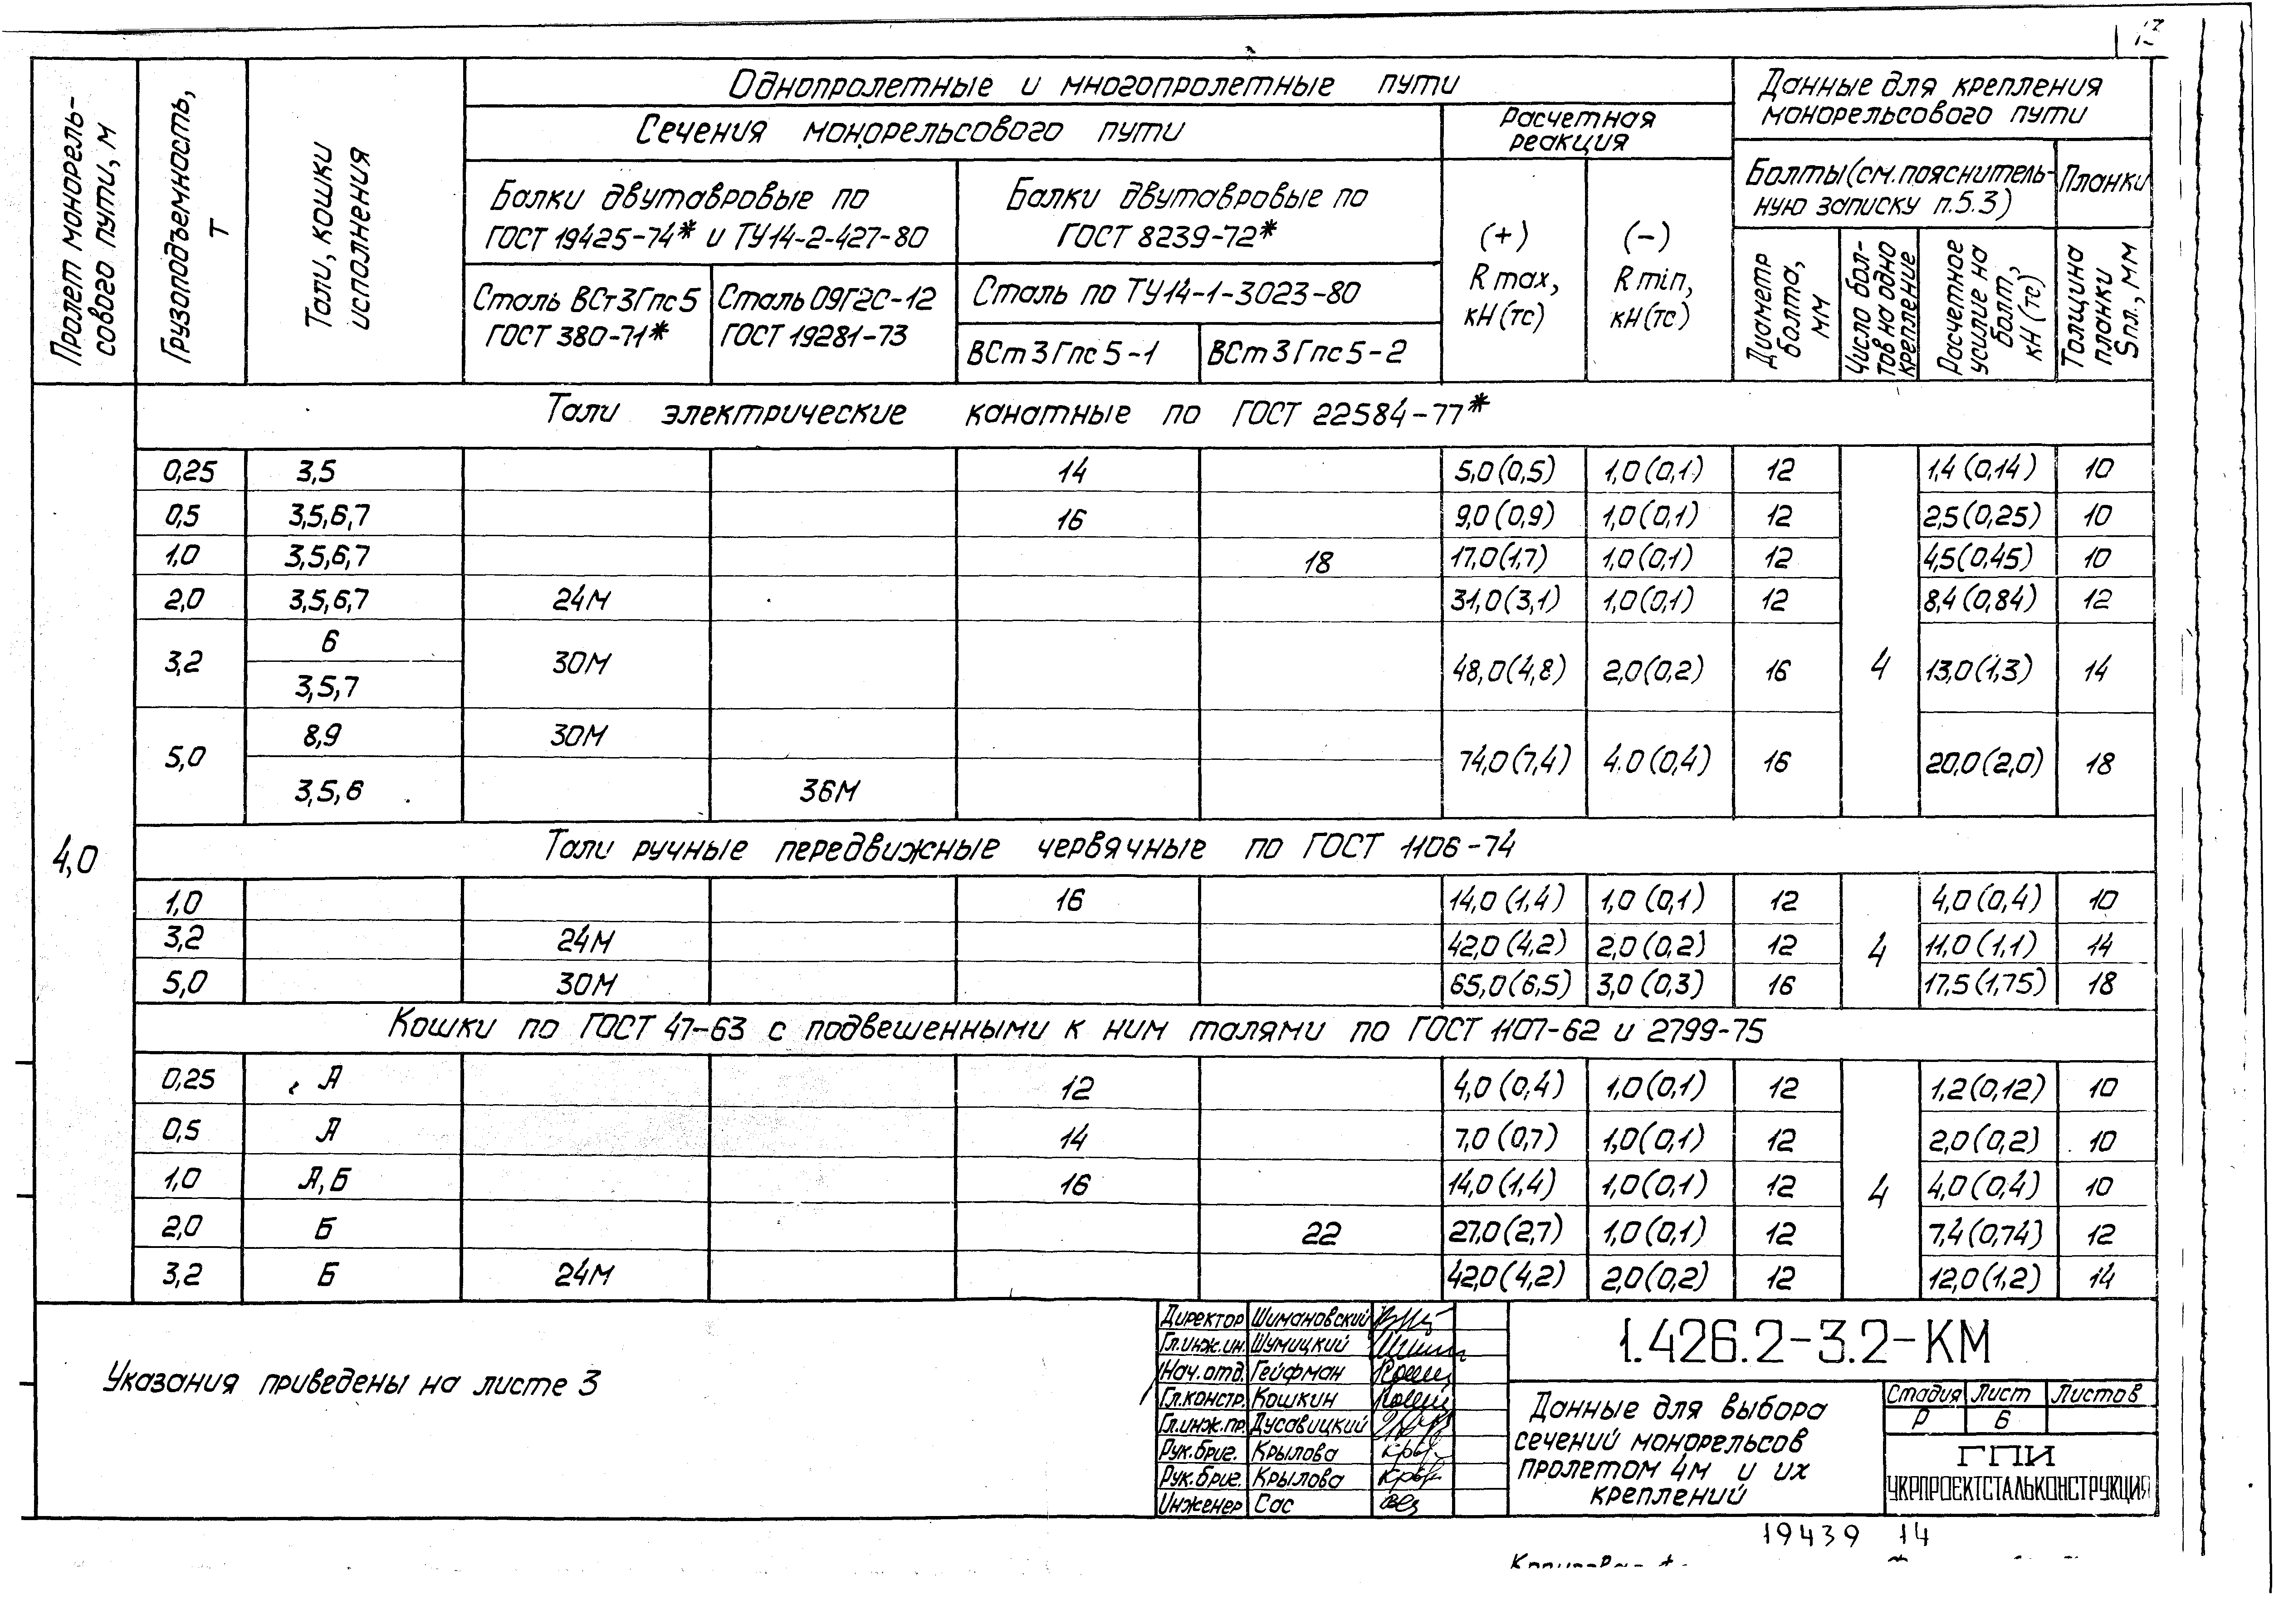 13
Пролет монорель-
сового пути, м
Грузоподъемность,
т
Тали, кошки
исполнения
Однопролетные и многопролетные пути
Сечения монорельсового пути
Балки двутавровые по
ГОСТ 19425-74* и ТУ14-2-427-80
Балки двутавровые по
ГОСТ 8239-72*
Сталь ВСт3Гпс5
ГОСТ 380-71*
Сталь 09Г2С-12
ГОСТ 19281-73
Сталь по ТУ14-1-3023-80
ВСт3Гпс5-1
ВСт3Гпс5-2
Расчетная
реакция
(+)
R max,
кН(тс)
(-)
R min,
кН(тс)
Данные для крепления
монорельсового пути
Болты(см.пояснитель-
ную записку п.5.3)
Планки
Диаметр
болта,
мм
Число бол-
тов на одно
крепление
Расчетное
усилие на
болт,
кН (тс)
Толщина
планки
Sпл., мм
4,0
Тали электрические канатные по ГОСТ 22584-77*
0,25 3,5 14 5,0(0,5) 1,0(0,1) 12 1,4(0,14) 10
0,5 3,5,6,7 16 9,0(0,9) 1,0(0,1) 12 2,5(0,25) 10
1,0 3,5,6,7 18 17,0(1,7) 1,0(0,1) 12 4,5(0,45) 10
2,0 3,5,6,7 24М 31,0(3,1) 1,0(0,1) 12 8,4(0,84) 12
6
3,2 30М 48,0(4,8) 2,0(0,2) 16 4 13,0(1,3) 14
3,5,7
8,9 30М
5,0 74,0(7,4) 4.0(0,4) 16 20,0(2,0) 18
3,5,6 36М
Тали ручные передвижные червячные по ГОСТ 1106-74
1,0 16 14,0(1,4) 1,0(0,1) 12 4,0(0,4) 10
3,2 24М 42,0(4,2) 2,0(0,2) 12 4 11,0(1,1) 14
5,0 30М 65,0(6,5) 3,0(0,3) 16 17,5(1,75) 18
Кошки по ГОСТ 47-63 с подвешенными к ним талями по ГОСТ 1107-62 и 2799-75
0,25 А 12 4,0(0,4) 1,0(0,1) 12 1,2(0,12) 10
0,5 А 14 7,0(0,7) 1,0(0,1) 12 2,0(0,2) 10
1,0 А,Б 16 14,0(1,4) 1,0(0,1) 12 4 4,0(0,4) 10
2,0 Б 22 27,0(2,7) 1,0(0,1) 12 7,4(0,74) 12
3,2 Б 24М 42,0(4,2) 2,0(0,2) 12 12,0(1,2) 14
Указания приведены на листе 3
Директор Шимановский
Гл.инж.ин. Шумицкий
Нач.отд. Гейфман
Гл.констр. Кошкин
Гл.инж.пр. Дусавицкий
Рук.бриг. Крылова
Рук.бриг. Крылова
Инженер Сас
1.426.2-3.2-КМ
Данные для выбора
сечений монорельсов
пролетом 4м и их
креплений
Стадия Лист Листов
Р 6
ГПИ
УКРПРОЕКТСТАЛЬКОНСТРУКЦИЯ
19439 14